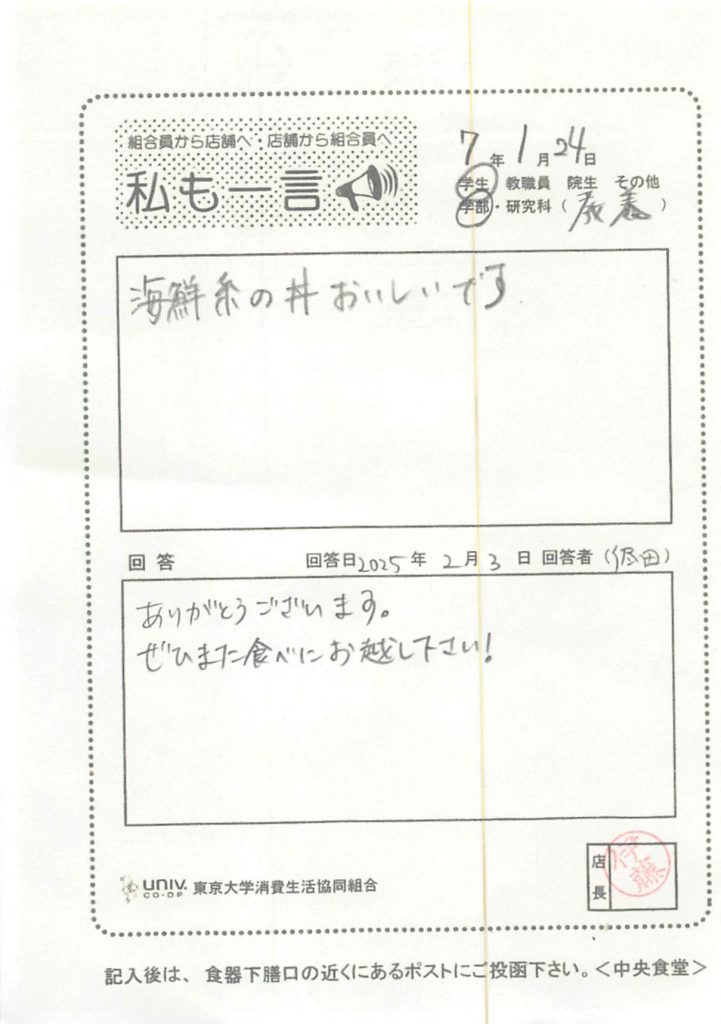 組合員から店舗へ・店舗から組合員へ
私も一言
7年1月24日
学生 教職員 院生 その他
学部・研究科(教養)
海鮮系の丼おいしいです
回答 回答日2025年2月3日 回答者(保田)
ありがとうございます。
ぜひまた食べにお越し下さい!
店長
伊藤
UNIV. CO-OP 東京大学消費生活協同組合
記入後は、食器下膳口の近くにあるポストにご投函下さい。<中央食堂>